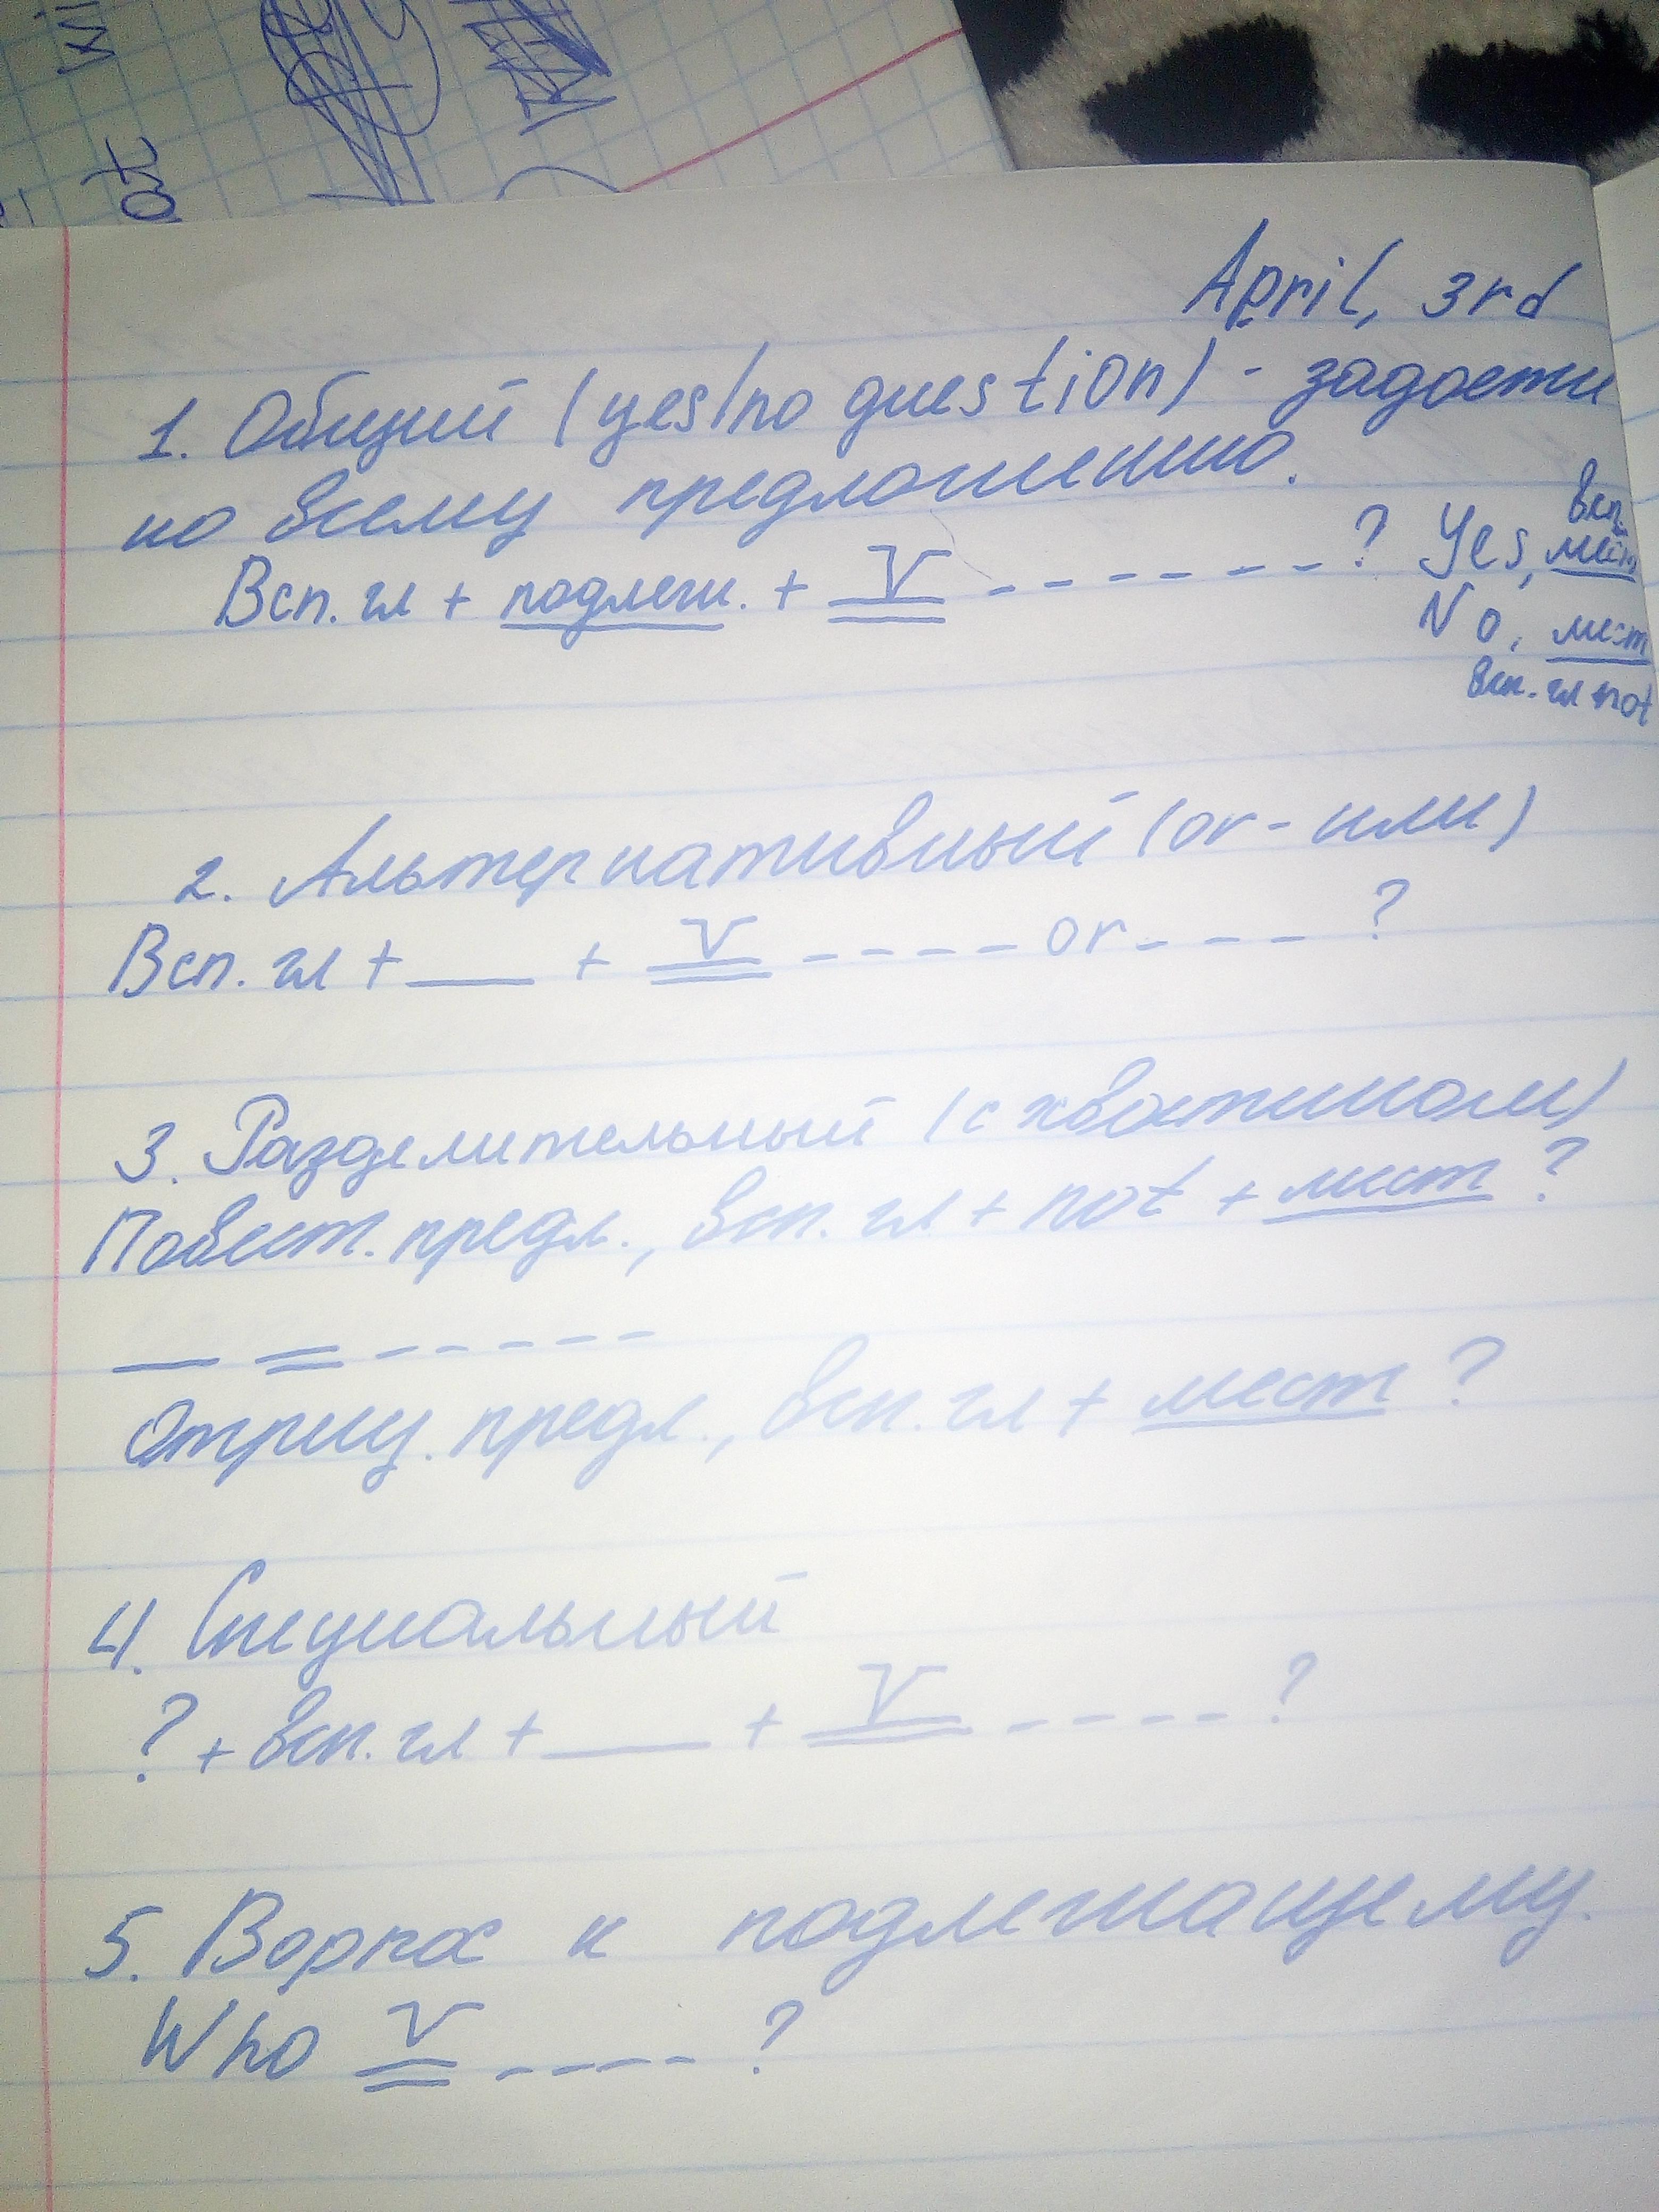 at
April, 3rd
1. Общий (yes/no question) - задаётся
ко всему предложению.
Всп. гл + подлеж. + V ------- ? Yes, мест
всп.
No, мест
всп. гл not
2. Альтернативный (or - или)
Всп. гл + __ + V ---- or ---- ?
3. Разделительный (с хвостиком)
Повест. предл., всп. гл + not + мест ?
__ = ------
Отриц. предл., всп. гл + мест ?
4. Специальный
? + всп. гл + __ + V ----- ?
5. Ворпос к подлежащему.
Who V ---- ?